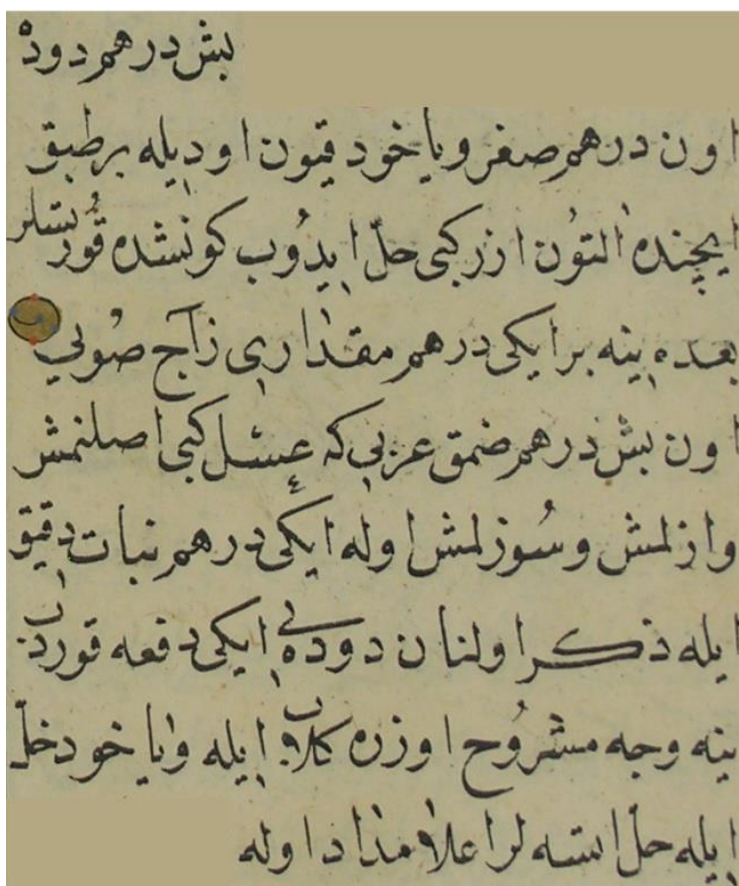 بش درهم دوده
اون درهم صغر ویا خود قیون اودیله بر طبق
ایچنده التون ازر کبی حل ایدوب کونشده قوریتسلر
بعده ینه بر ایکی درهم مقداری زاج صویی
اون بش درهم ضمق عربی که عسل کبی اصلنمش
وازلمش وسوزلمش اوله ایکی درهم نبات دقیق
ایله ذکر اولنان دوده یی ایکی دفعه قوردب
ینه وجه مشروح اوزره کلاب ایله ویا خود خل
ایله حل ایتسه لر اعلا مداد اوله